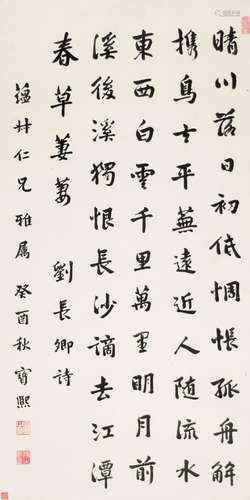 晴川落日初低惆悵孤舟解
携鳥去平蕪遠近人随流水
東西白雲千里萬里明月前
溪後溪獨恨長沙謫去江潭
春草萋萋 劉長卿詩
仁兄雅屬 癸酉秋寶熙